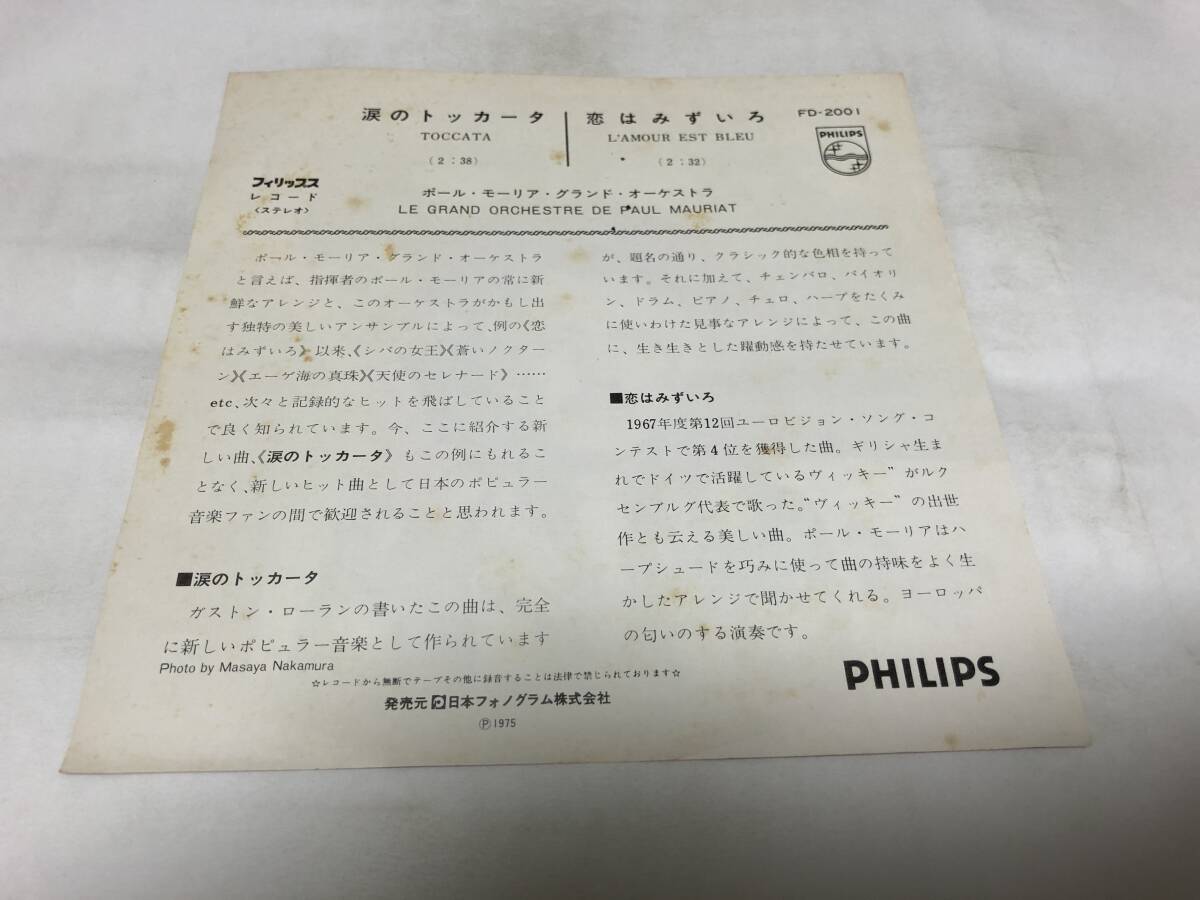 涙のトッカータ
TOCCATA
(2:38)
恋はみずいろ
L'AMOUR EST BLEU
(2:32)
FD-2001
PHILIPS
フィリップス
レコード
〈ステレオ〉
ポール・モーリア・グランド・オーケストラ
LE GRAND ORCHESTRE DE PAUL MAURIAT
ポール・モーリア・グランド・オーケストラ
と言えば、指揮者のポール・モーリアの常に新
鮮なアレンジと、このオーケストラがかもし出
す独特の美しいアンサンブルによって、例の《恋
はみずいろ》以来、《シバの女王》《蒼いノクター
ン》《エーゲ海の真珠》《天使のセレナード》……
etc、次々と記録的なヒットを飛ばしていること
で良く知られています。今、ここに紹介する新
しい曲、《涙のトッカータ》もこの例にもれるこ
となく、新しいヒット曲として日本のポピュラー
音楽ファンの間で歓迎されることと思われます。
■涙のトッカータ
ガストン・ローランの書いたこの曲は、完全
に新しいポピュラー音楽として作られています
が、題名の通り、クラシック的な色相を持って
います。それに加えて、チェンバロ、バイオリ
ン、ドラム、ピアノ、チェロ、ハープをたくみ
に使いわけた見事なアレンジによって、この曲
に、生き生きとした躍動感を持たせています。
■恋はみずいろ
1967年度第12回ユーロビジョン・ソング・コ
ンテストで第4位を獲得した曲。ギリシャ生ま
れでドイツで活躍しているヴィッキー”がルク
センブルグ代表で歌った。“ヴィッキー”の出世
作とも云える美しい曲。ポール・モーリアはハ
ープシュードを巧みに使って曲の持味をよく生
かしたアレンジで聞かせてくれる。ヨーロッパ
の匂いのする演奏です。
Photo by Masaya Nakamura
☆レコードから無断でテープその他に録音することは法律で禁じられております☆
発売元 日本フォノグラム株式会社
Ⓟ1975
PHILIPS